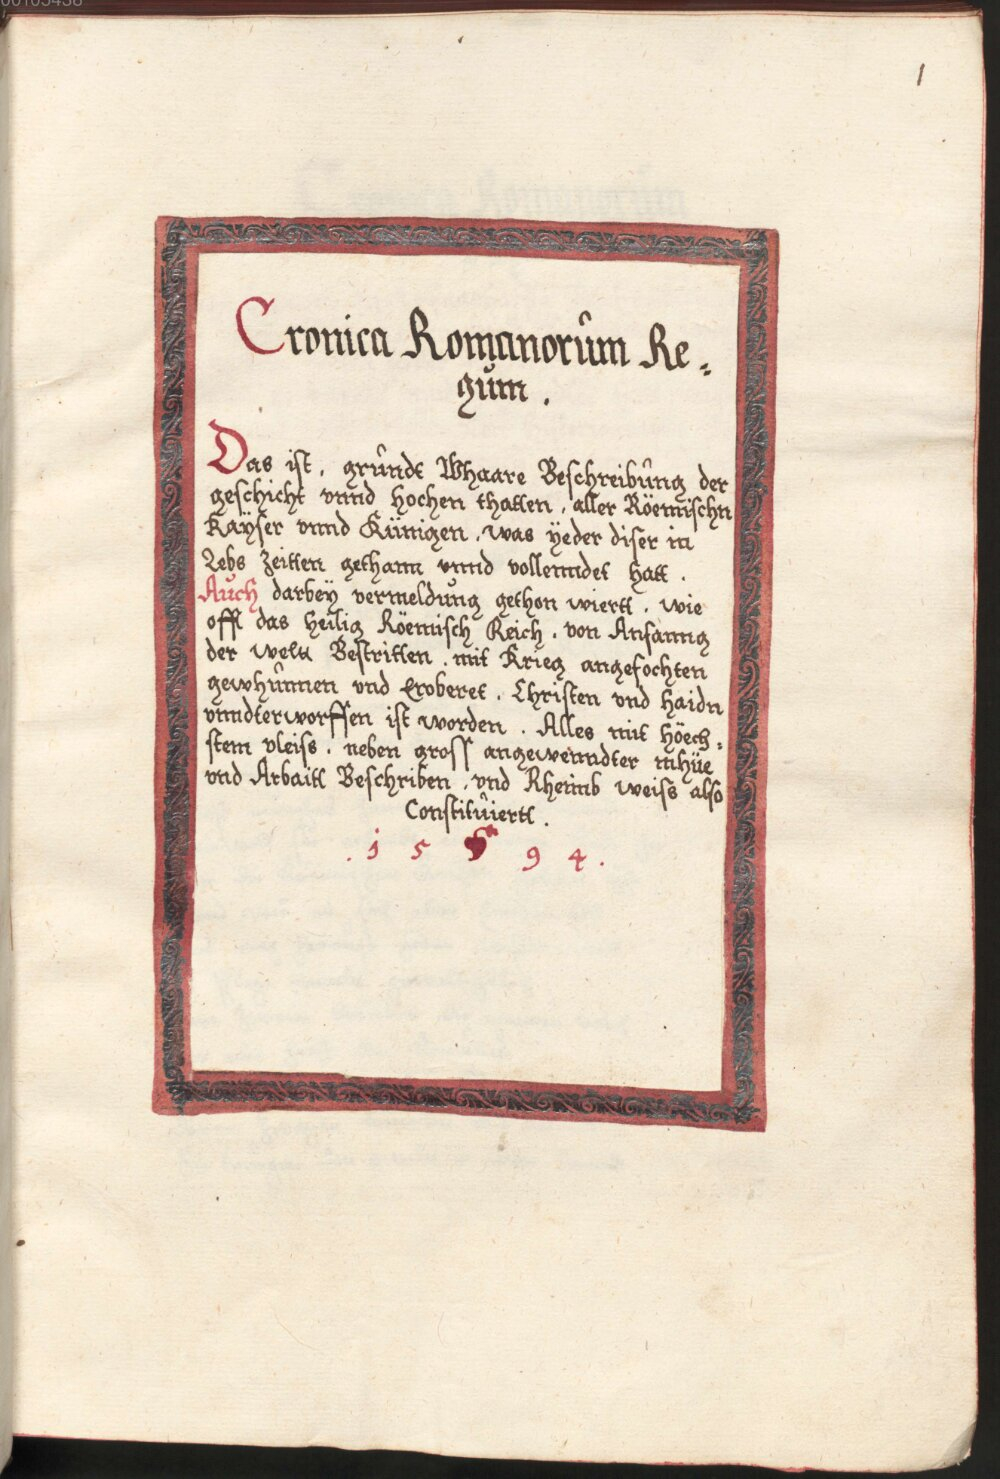 00105438
1
Cronica Romanorum Re⸗
gum.
Das ist, grundt Whaare Beschreibung der
geschicht vnnd hochen thatten, aller Röemischn
Kayser vnnd Künigen, was yeder diser in
Lebs Zeitten gethann vnnd vollenndet hatt.
Auch darbey vermeldung gethon wiertt, wie
offt das heilig Röemisch Reich, von Anfanng
der welt Bestritten, mit Krieg angefochten
gewhunnen vnd eroberet, Christen vnd haidn
vnndterworffen ist worden. Alles mit höech⸗
stem vleiss, neben gross angewenndter mhüe
vnd Arbaitt Beschriben, vnd Rheimb weiss also
Constituiertt.
. 1 5 9 4 .